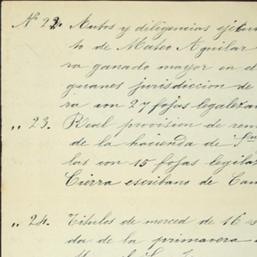 Nº 22. Autos y diligencias ejecu
to de Mateo Aguilar
ra ganado mayor en el
guanes jurisdiccion de
ra con 27 fojas legalizan
„ 23. Real provision de rem
de la hacienda de Sn
las con 15 fojas legilar
Cierra escribano de Cam
„ 24. Titulos de merced de 16 s
da de la primavera